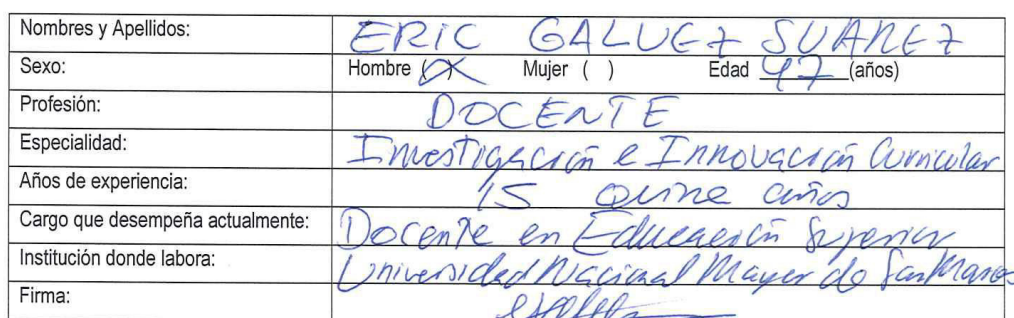 Nombres y Apellidos: ERIC GALVEZ SUAREZ
Sexo: Hombre (X) Mujer ( ) Edad 47 (años)
Profesión: DOCENTE
Especialidad: Investigación e Innovación Curricular
Años de experiencia: 15 quince años
Cargo que desempeña actualmente: Docente en Educación Superior
Institución donde labora: Universidad Nacional Mayor de San Marcos
Firma: